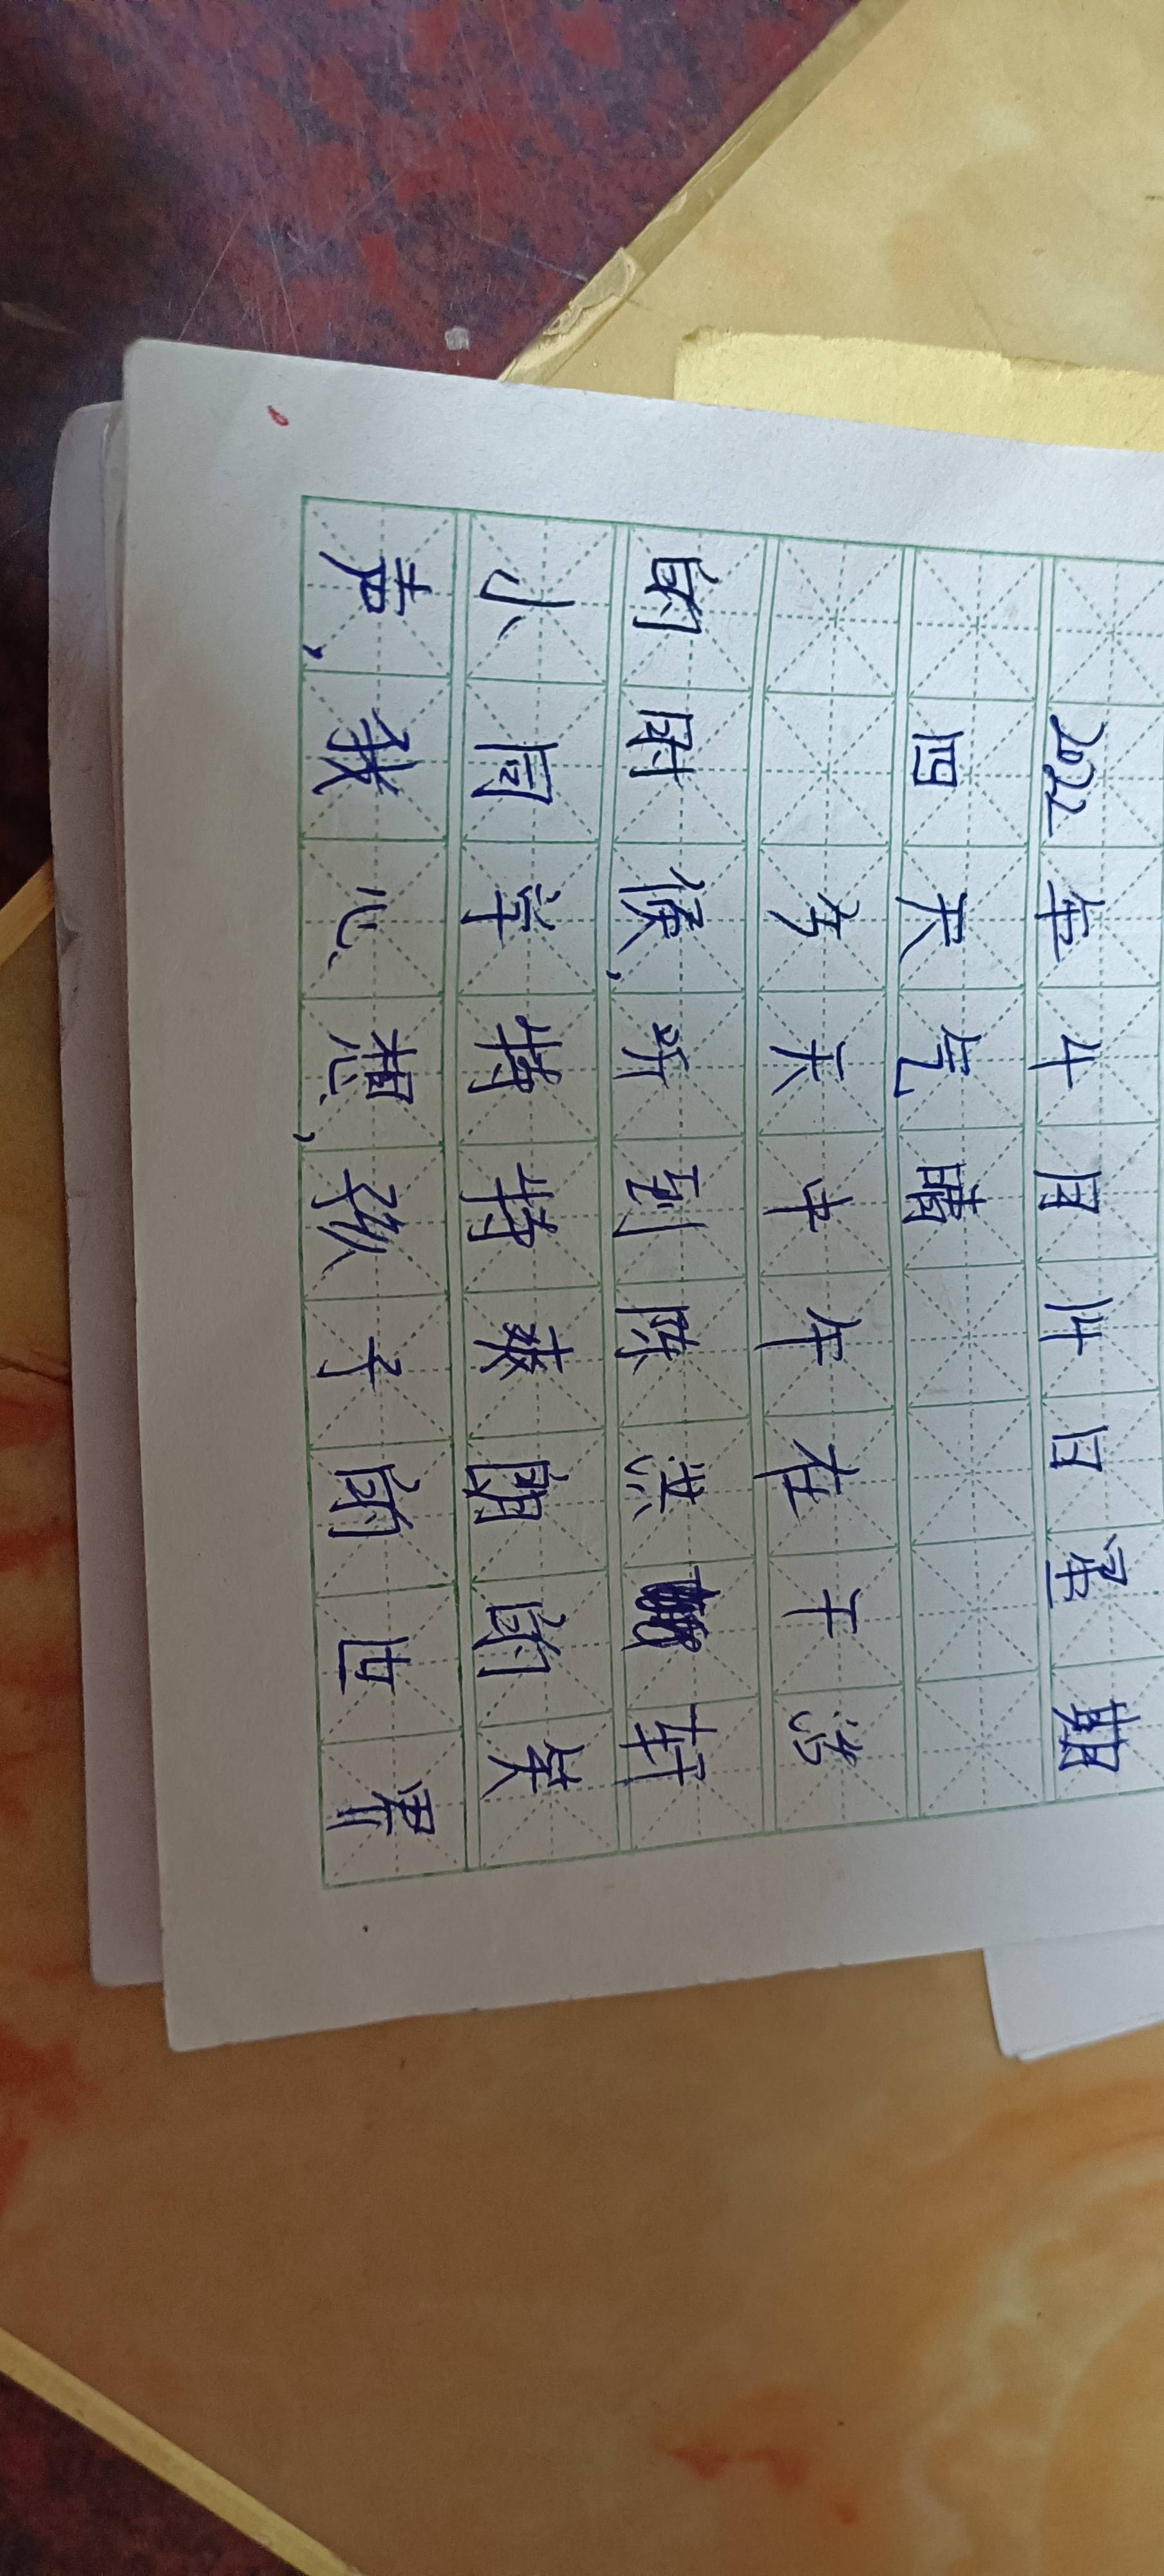 2022年4月14日星期
四天气晴
今天中午在干活
的时候,听到陈洪轩
小同学特特爽朗的笑
声,我心想,孩子的世界